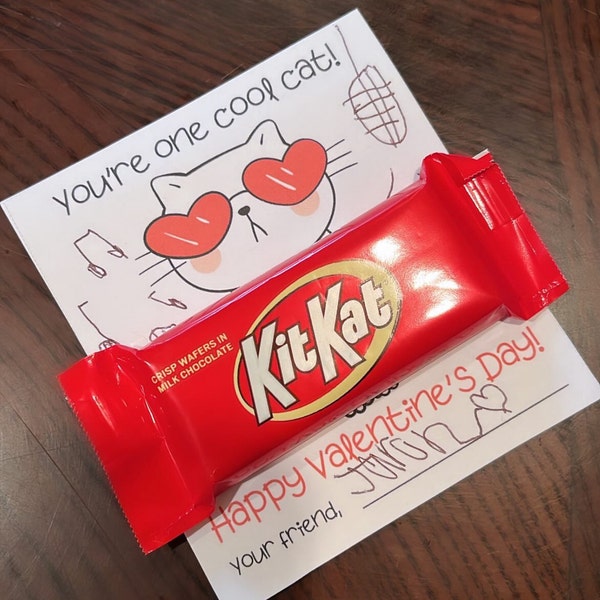 you're one cool cat!
CRISP WAFERS IN
MILK CHOCOLATE
KitKat
Happy Valentine's Day!
your friend,